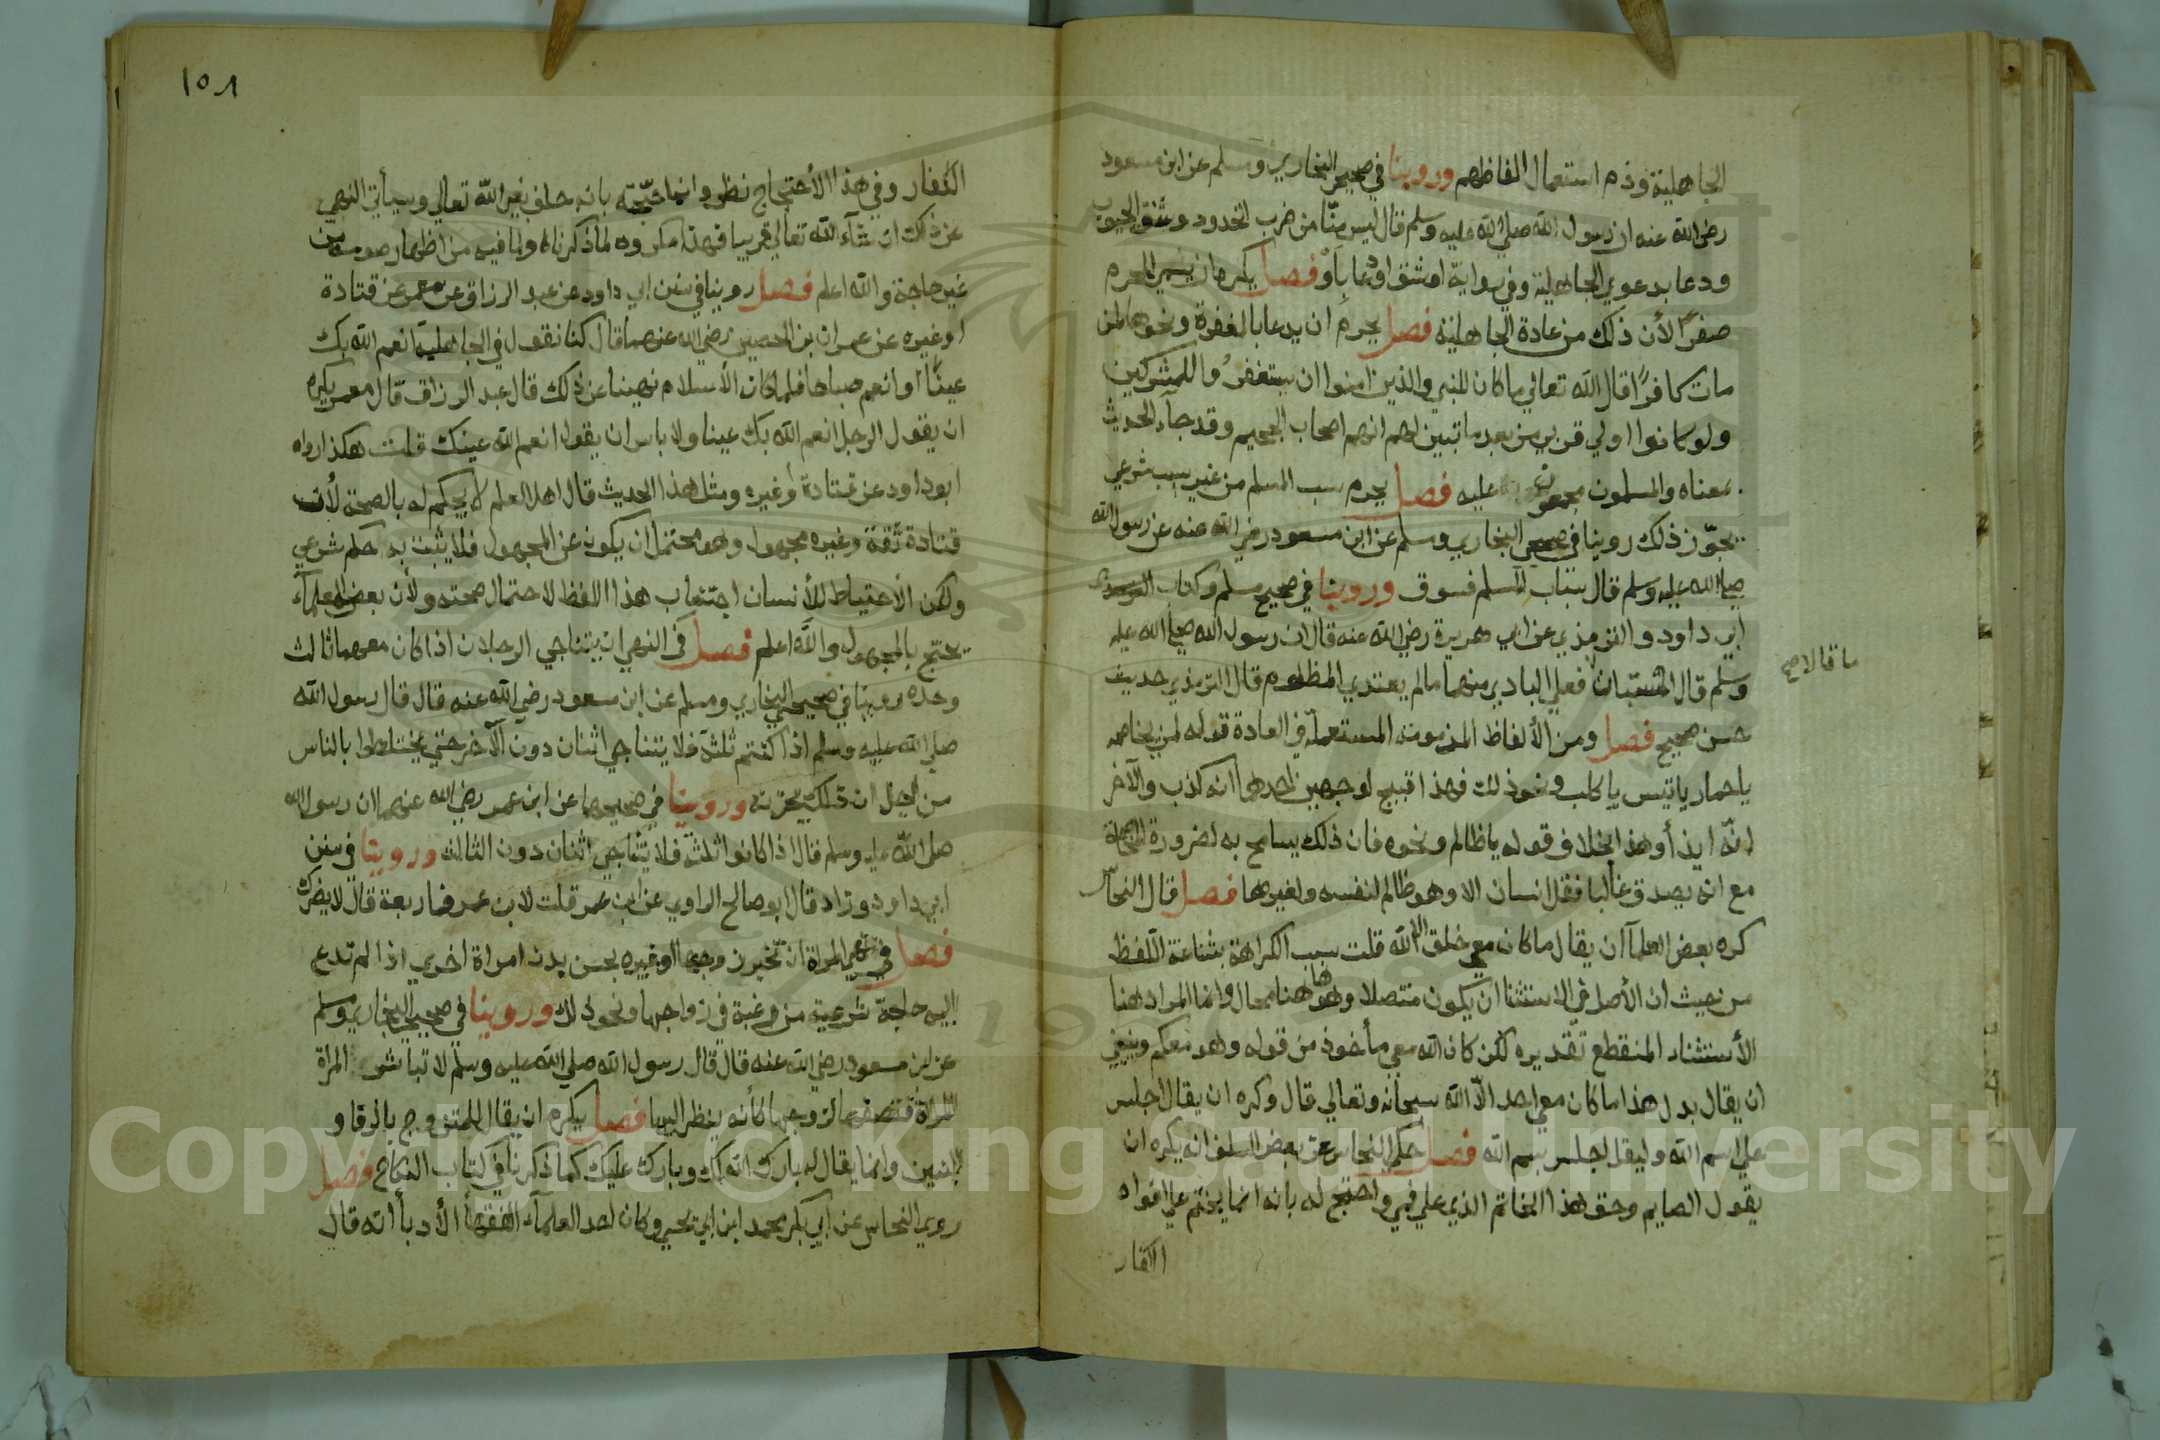 الجاهلية وذم استعمال الفاظهم وروينا في صحيحي البخاري ومسلم عن ابن مسعود
رضي الله عنه ان رسول الله صلي الله عليه وسلم قال ليس منّا من ضرب الخدود وشق الجيوب
ودعا بدعوي الجاهلية وفي رواية او شق او دعا بِاَوْ فصل يكره ان يسمي المحرم
صفرًا لأن ذلك من عادة الجاهلية فصل يحرم ان يدعا بالمغفرة ونحوها لمن
مات كافرًا قال الله تعالي ما كان للنبي والذين امنوا ان يستغفروا للمشركين
ولو كانوا اولي قربي من بعد ما تبين لهم انهم اصحاب الجحيم وقد جآء الحديث
بمعناه والمسلمون مجمعون عليه فصل يحرم سب المسلم من غير سبب شرعي
يجوّز ذلك روينا في صحيحي البخاري ومسلم عن ابن مسعود رضي الله عنه عن رسول الله
صلي الله عليه وسلم قال سباب المسلم فسوق وروينا في صحيح مسلم وكتاب
ابي داود والترمذي عن ابي هريرة رضي الله عنه قال ان رسول الله صلي الله عليه
وسلم قال المستبان فعلي البادي منهما مالم يعتدي المظلوم قال الترمذي حديث
ما قالا صح
حسن صحيح فصل ومن الألفاظ المذمومة المستعملة في العادة قوله لمن يخاصمه
يا حمار يا تيس يا كلب ونحو ذلك فهذا قبيح لوجهين احدهما انه كذب والآخر
انّه ايذأ وهذا بخلاف قوله يا ظالم ونحوه فان ذلك يسامح به لضرورة المخاصمة
مع انه يصدق غالبا فقل انسان الا وهو ظالم لنفسه ولغيرها فصل قال النحاس
كره بعض العلمآ ان يقال ما كان معي خلق الا الله قلت سبب الكراهة بشاعة اللفظ
من حيث ان الأصل في الاستثنا ان يكون متصلا وهو هاهنا محال وانما المراد هنا
الأستثناء المنقطع تقديره لكن كان الله معي مأخوذ من قوله وهو معكم وينبغي
ان يقال بدل هذا ما كان معي احد الاّ الله سبحانه وتعالي قال وكره ان يقال اجلس
علي اسم الله وليقل اجلس بسم الله فصل حكي النحاس عن بعض السلف انه يكره ان
يقول الصايم وحق هذا الخاتم الذي علي فمي واحتج له بانه انما يختم علي افواه
الكفار
١٥٨
الكفار وفي هذا الأحتجاج نظر وانما حجّته بانه حلف بغير الله تعالي وسيأتي النهي
عن ذلك ان شآء الله تعالي قريبا فهذا مكروه لما ذكرناه ولما فيه من اظهار صومه من
غير حاجة والله اعلم فصل روينا في سنن ابي داود عن عبد الرزاق عن معمر عن قتادة
او غيره عن عمران بن الحصين رضي الله عنهما قال كنا نقول في الجاهلية انعم الله بك
عينًا وانعم صباحا فلما كان الأسلام نهينا عن ذلك قال عبد الرزاق قال معمر يكره
ان يقول الرجل انعم الله بك عينا ولا باس ان يقول انعم الله عينك قلت هكذا رواه
ابو داود عن قتادة أوغيره ومثل هذا الحديث قال اهل العلم لا يحكم له بالصحة لأن
قتادة ثقة وغيره مجهول وهو محتمل ان يكون عن المجهول فلا يثبت به حكم شرعي
ولكن الأحتياط للأنسان اجتناب هذا اللفظ لاحتمال صحته ولأن بعض العلمآء
يحتج بالمجهول والله اعلم فصل في النهي ان يتناجي الرجلان اذا كان معهما ثالث
وحده روينا في صحيحي البخاري ومسلم عن ابن مسعود رضي الله عنه قال قال رسول الله
صلي الله عليه وسلم اذا كنتم ثلثة فلا يتناجي اثنان دون الآخر حتي يختلطوا بالناس
من اجل ان ذلك يحزنه وروينا في صحيحيهما عن ابن عمر رضي الله عنهما ان رسول الله
صلي الله عليه وسلم قال اذا كانوا ثلثة فلا يتناجي اثنان دون الثالث وروينا في سنن
ابي داود وزاد قال ابو صالح الراوي عن ابن عمر قلت لابن عمر فاربعة قال لا يضرك
فصل في نهي المراة ان تخبر زوجها او غيره بحسن بدن امراة اخري اذا لم تدع
اليه حاجة شرعية من رغبة في زواجها ونحو ذلك وروينا في صحيحي البخاري ومسلم
عن ابن مسعود رضي الله عنه قال قال رسول الله صلي الله عليه وسلم لا تباشر المراة
المراة فتصفها لزوجها كأنه ينظر اليها فصل يكره ان يقال للمتزوج بالرفا و
البنين وانما يقال له بارك الله لك وبارك عليك كما ذكرنا في كتاب النكاح فصل
روي النحاس عن ابي بكر محمد ابن ابي يحيي وكان احد العلمآء الفقهأ الأدبأ انه قال
Copyright © King Saud University